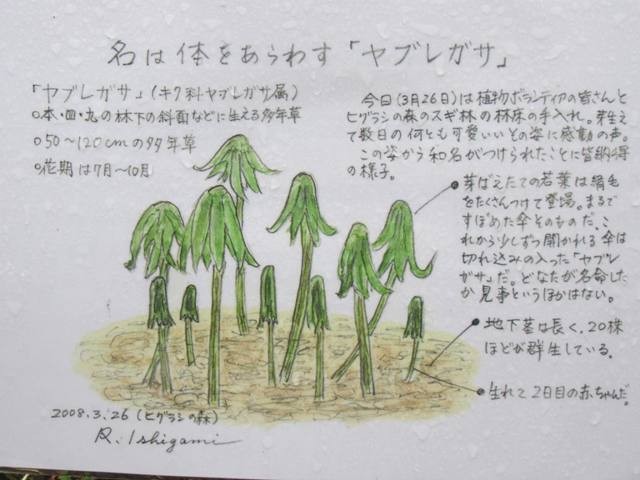 名は体をあらわす「ヤブレガサ」
「ヤブレガサ」(キク科ヤブレガサ属)
○本・四・九の林下の斜面などに生える多年草
○50〜120cmの多年草
○花期は7月〜10月
今日(3月26日)は植物ボランティアの皆さんと
ヒグラシの森のスギ林の林床の手入れ。芽生え
て数日の何とも可愛いいその姿に感動の声。
この姿から和名がつけられたことに皆納得
の様子。
芽ばえたての若葉は絹毛
をたくさんつけて登場。まるで
すぼめた傘そのものだ。こ
れから少しずつ開かれる傘は
切れ込みの入った「ヤブレ
ガサ」だ。どなたが名命した
か見事というほかはない。
地下茎は長く、20株
ほどが群生している。
生れて2日目の赤ちゃんだ。
2008.3.26(ヒグラシの森)
R. Ishigami